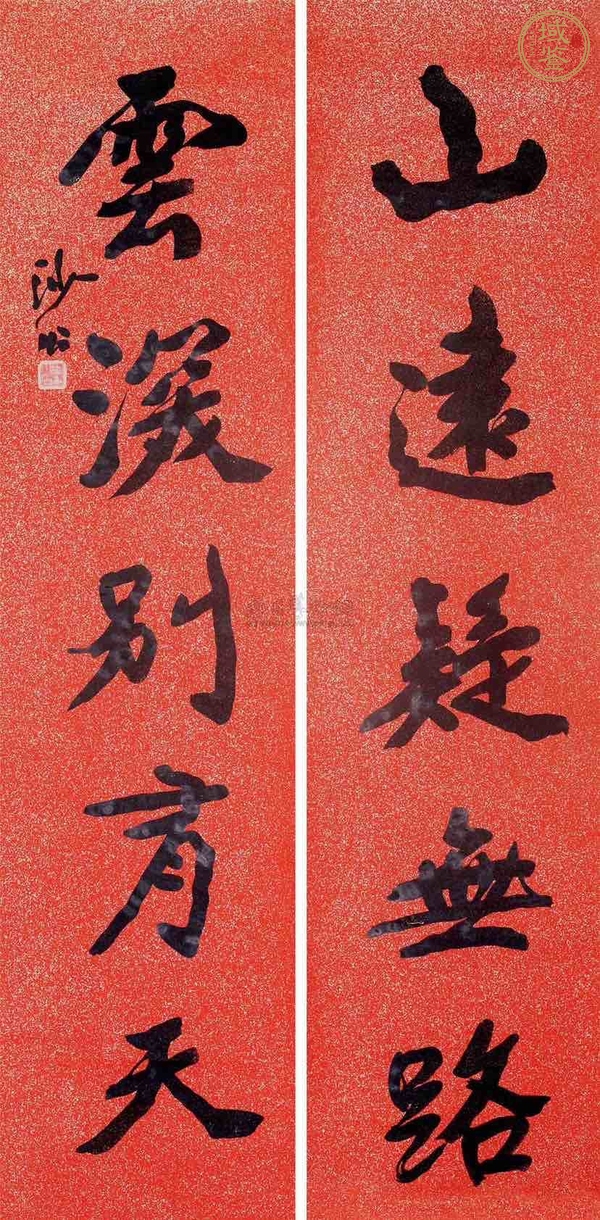 山遠疑無路
雲深別有天
沙
域鉴